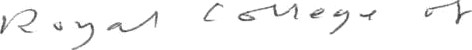 Royal College of